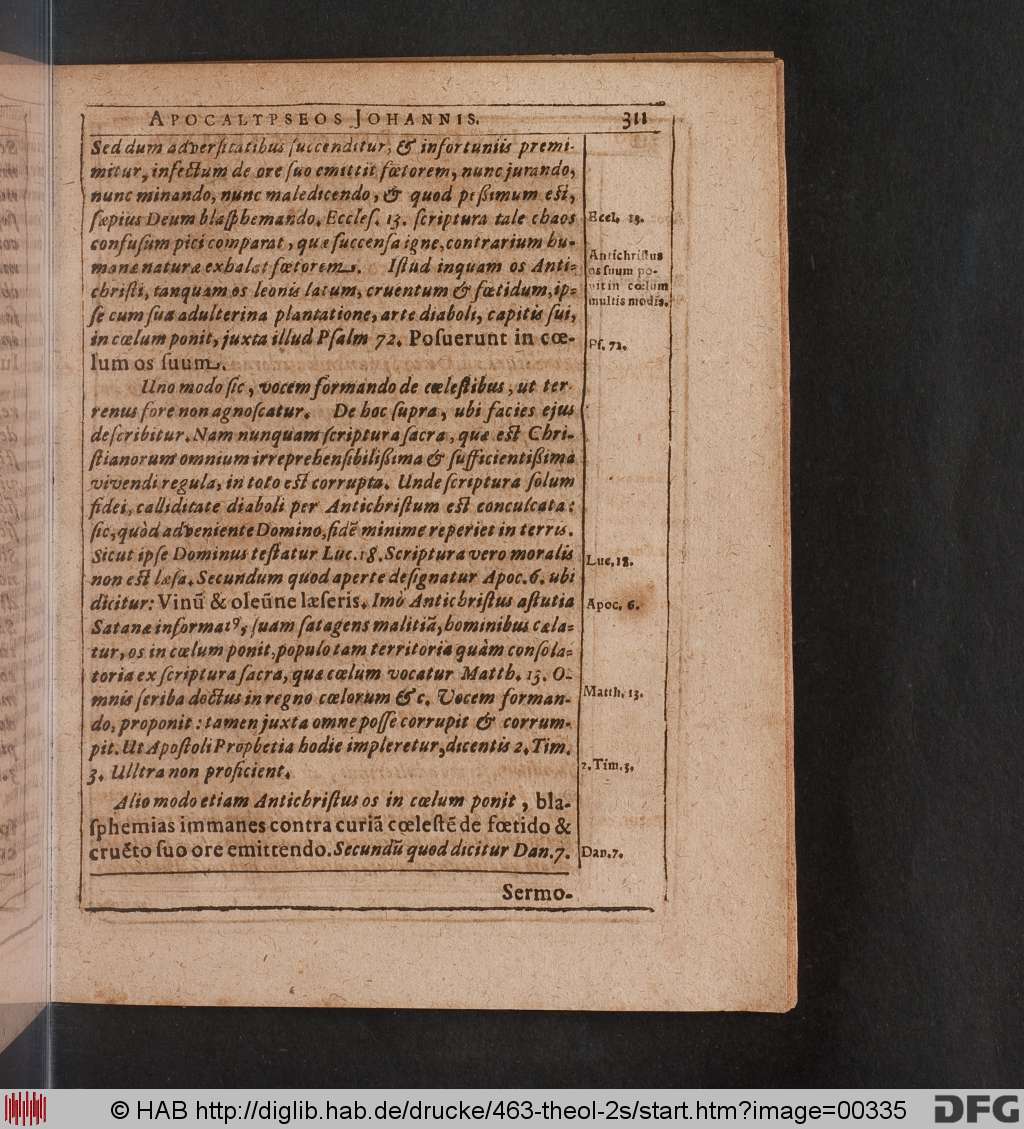 APOCALYPSEOS JOHANNIS. 311
Sed dum adversitatibus succenditur, & infortuniis premi-
mitur, infectum de ore suo emittit fœtorem, nunc jurando,
nunc minando, nunc maledicendo, & quod peßimum est,
sæpius Deum blasphemando. Eccles. 13. scriptura tale chaos
confusum pici comparat, quæ succensa igne, contrarium hu-
manæ naturæ exhalat fœtorem. Istud inquam os Anti-
christi, tanquam os leonis latum, cruentum & fœtidum, ip-
se cum sua adulterina plantatione, arte diaboli, capitis sui,
in cœlum ponit, juxta illud Psalm 72. Posuerunt in cœ-
lum os suum.
Uno modo sic, vocem formando de cœlestibus, ut ter-
renus fore non agnoscatur. De hoc supra, ubi facies ejus
describitur. Nam nunquam scriptura sacra, quæ est Chri-
stianorum omnium irreprehensibilißima & sufficientißima
vivendi regula, in toto est corrupta. Unde scriptura solum
fidei, calliditate diaboli per Antichristum est conculcata:
sic, quòd adveniente Domino, fidẽ minime reperiet in terris.
Sicut ipse Dominus testatur Luc. 18. Scriptura vero moralis
non est læsa. Secundum quod aperte designatur Apoc. 6. ubi
dicitur: Vinũ & oleũ ne læseris. Imò Antichristus astutia
Satanæ informatꝰ, suam satagens malitiã, hominibus cæla-
tur, os in cœlum ponit, populo tam territoria quàm consola-
toria ex scriptura sacra, quæ cœlum vocatur Matth. 13. O-
mnis scriba doctus in regno cœlorum &c. Vocem forman-
do, proponit: tamen juxta omne posse corrupit & corrum-
pit. Ut Apostoli Prophetia hodie impleretur, dicentis 2. Tim.
3. Ulltra non proficient.
Alio modo etiam Antichristus os in cœlum ponit, bla-
sphemias immanes contra curiã cœlestẽ de fœtido &
cruẽto suo ore emittendo. Secundũ quod dicitur Dan. 7.
Sermo-
Eccl. 13.
Antichristus
os suum po-
nit in cœlum
multis modis.
Ps. 72.
Luc. 18.
Apoc. 6.
Matth. 13.
2. Tim. 3.
Dan. 7.
© HAB http://diglib.hab.de/drucke/463-theol-2s/start.htm?image=00335
DFG